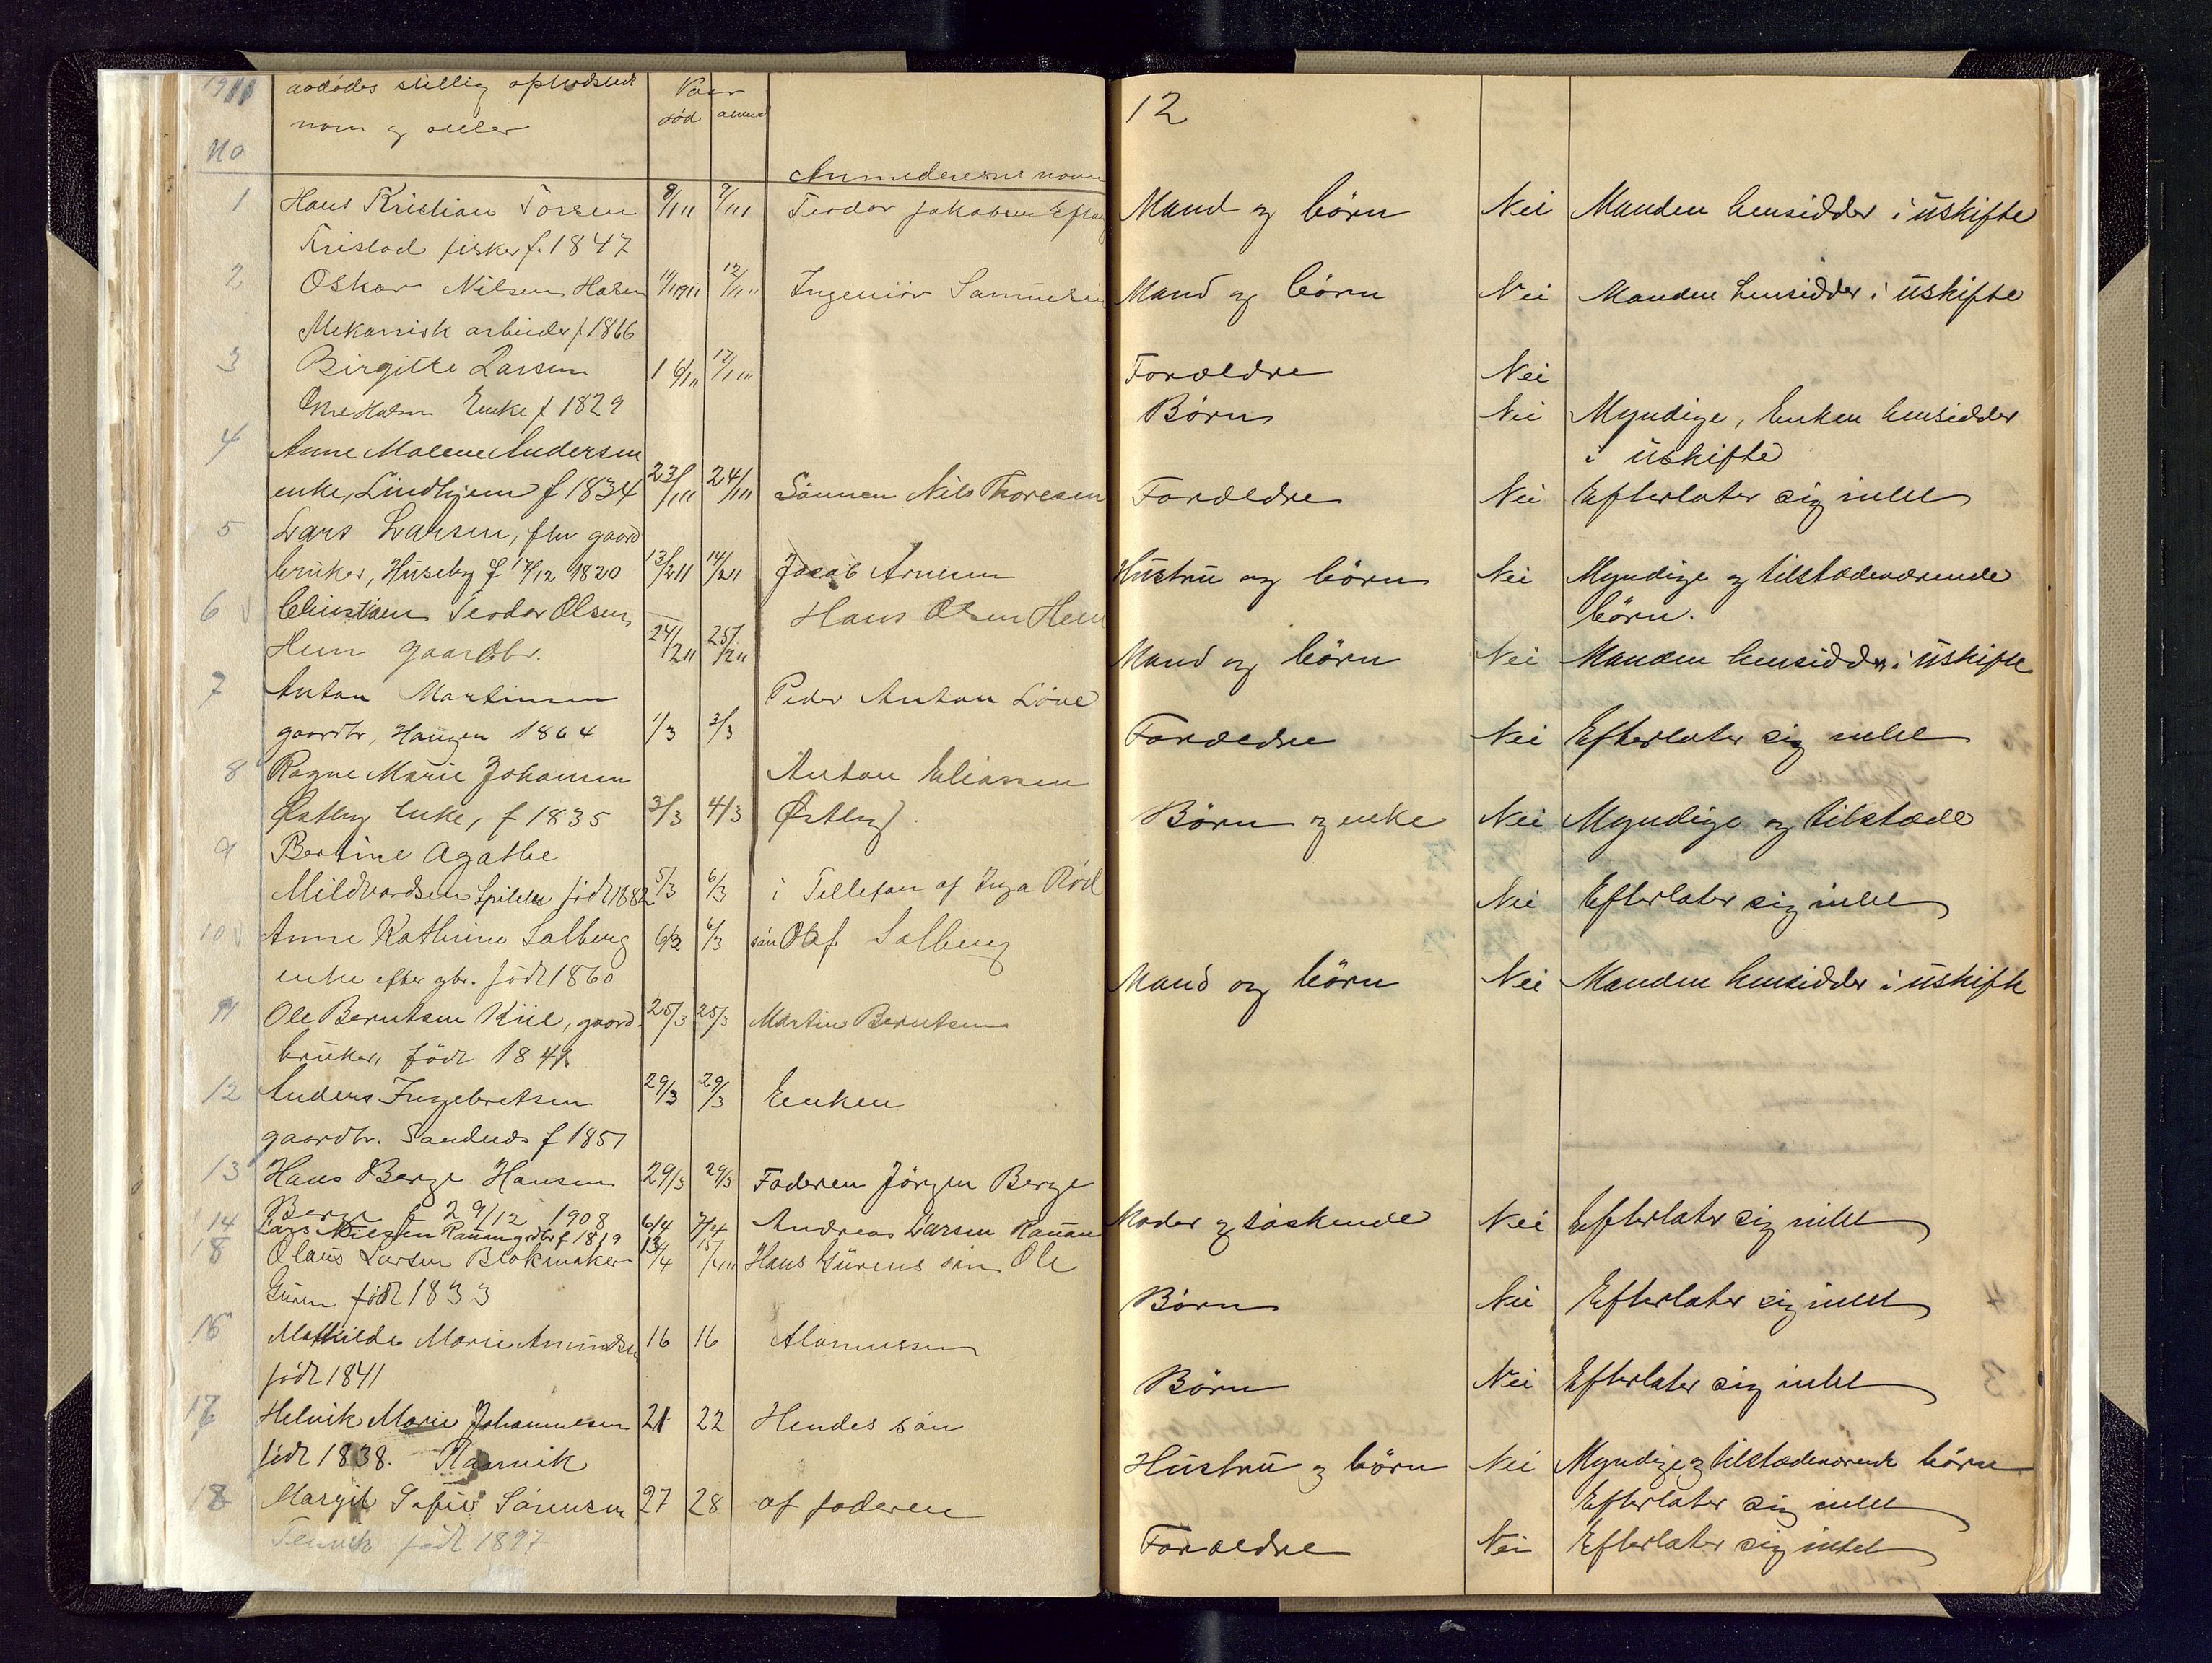 1911
avdødes stilling opholdssted
navn og alder
Naar
død
anm
No
Anmelderens navn
1 Hans Kristian Torsen 8/1 11 9/1 11 Teodor Jakobsen
fisker f. 1847
2 Oskar Nilsen Holsen 11/1 1911 12/1 11 Ingeniør Samuelsen
Mekanisk arbeider f 1866
3 Birgitte Larsen 16/1 11 17/1 11
Enke f 1829
4 Anne Malene Andersen
enke, Lindhjem f 1834 23/1 11 24/1 11 Sønnen Nils Thoresen
5 Lars Larsen, fhv gaard
bruker, Huseby f 17/12 1820 13/2 11 14/2 11 Jacob Arnesen
6 Christian Teodor Olsen Hans Olsen Hem
Hem gaardbr. 24/2 11 25/2 11
7 Anton Martinsen Peder Anton Løve
gaardbr, Haugen 1864 1/3 3/3
8 Ragne Marie Johansen Anton Eliassen
Østby Enke, f 1835 3/3 4/3 Østby.
9 Bertine Agathe
Mildvardsen født 1882 5/3 6/3 i Tellefon af Inga Rød
10 Anne Kathrine Solberg 6/3 6/3 søn Olaf Solberg
enke efter gbr. født 1860
11 Ole Berntsen Kiil, gaard 25/3 25/3 Martin Berntsen
bruker, født 184
12 Anders Ingebretsen 29/3 29/3 Enken
gaardbr. f 1851
13 Hans Berge Hansen 29/3 29/3 Faderen Jørgen Berge
Berge f 29/12 1908
14 Lars Nielsen Rauan grdbr f 1819 6/4 7/4 Andreas Larsen Rauan
Olaus Larsen Blokmaker 13/4 15/4 11 Hans Gurens søn Ole
Guren født 1833
Mathilde Marie Amundsen 16 16
født 1841
17 Helvik Marie Johannesen 21 22 Hendes søn
født 1838.
18 Margit Sofie Sørensen 27 28 af faderen
født 1897
12
Mand og børn Nei Manden hensidder i uskifte
Mand og børn Nei Manden hensidder i uskifte
Forældre Nei
Børn Nei Myndige, Enken hensidder
i uskifte
Forældre Nei Efterlater sig intet
Hustru og børn Nei Myndige og tilstædeværende
børn.
Mand og børn Nei Manden hensidder i uskifte
Forældre Nei Efterlater sig intet
Børn og enke Nei Myndige og tilstæde
Nei Efterlater sig intet
Mand og børn Nei Manden hensidder i uskifte
Moder og søskende Nei Efterlater sig intet
Børn Nei Efterlater sig intet
Børn Nei Efterlater sig intet
Hustru og børn Nei Myndige og tilstædeværende børn
Efterlater sig intet
Forældre Nei Efterlater sig intet